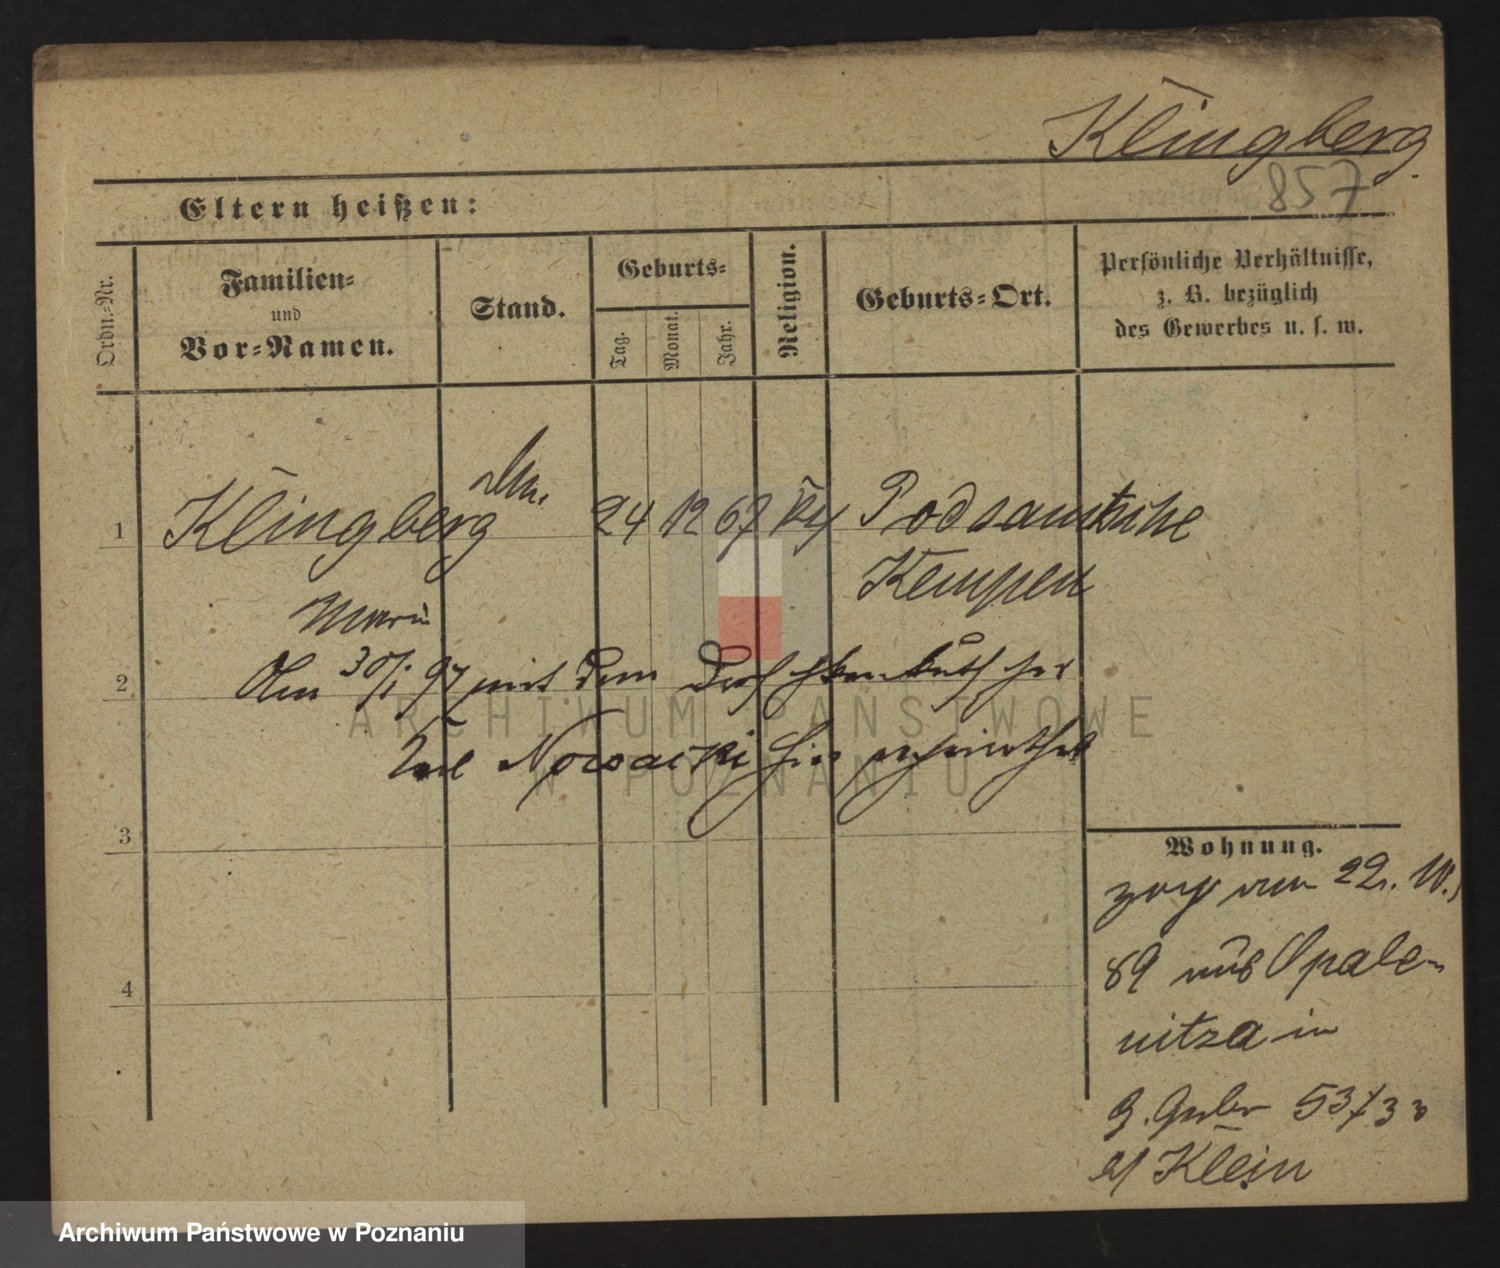 Klingberg.
857
Eltern heißen:
Ordn.-Nr.
Familien-
und
Vor-Namen.
Stand.
Geburts-
Tag.
Monat.
Jahr.
Religion.
Geburts-Ort.
Persönliche Verhältnisse,
z. B. bezüglich
des Gewerbes u. s. w.
1 Klingberg 24 12 67 Podsamtsche
Kempen
Marie
2 Am 30/1 97 mit dem
Nowacki hier verheirathet
3
4
Wohnung.
zog am 22. 10.
89 aus Opale-
nitza in
53
Klein
ARCHIWUM PAŃSTWOWE
W POZNANIU
Archiwum Państwowe w Poznaniu